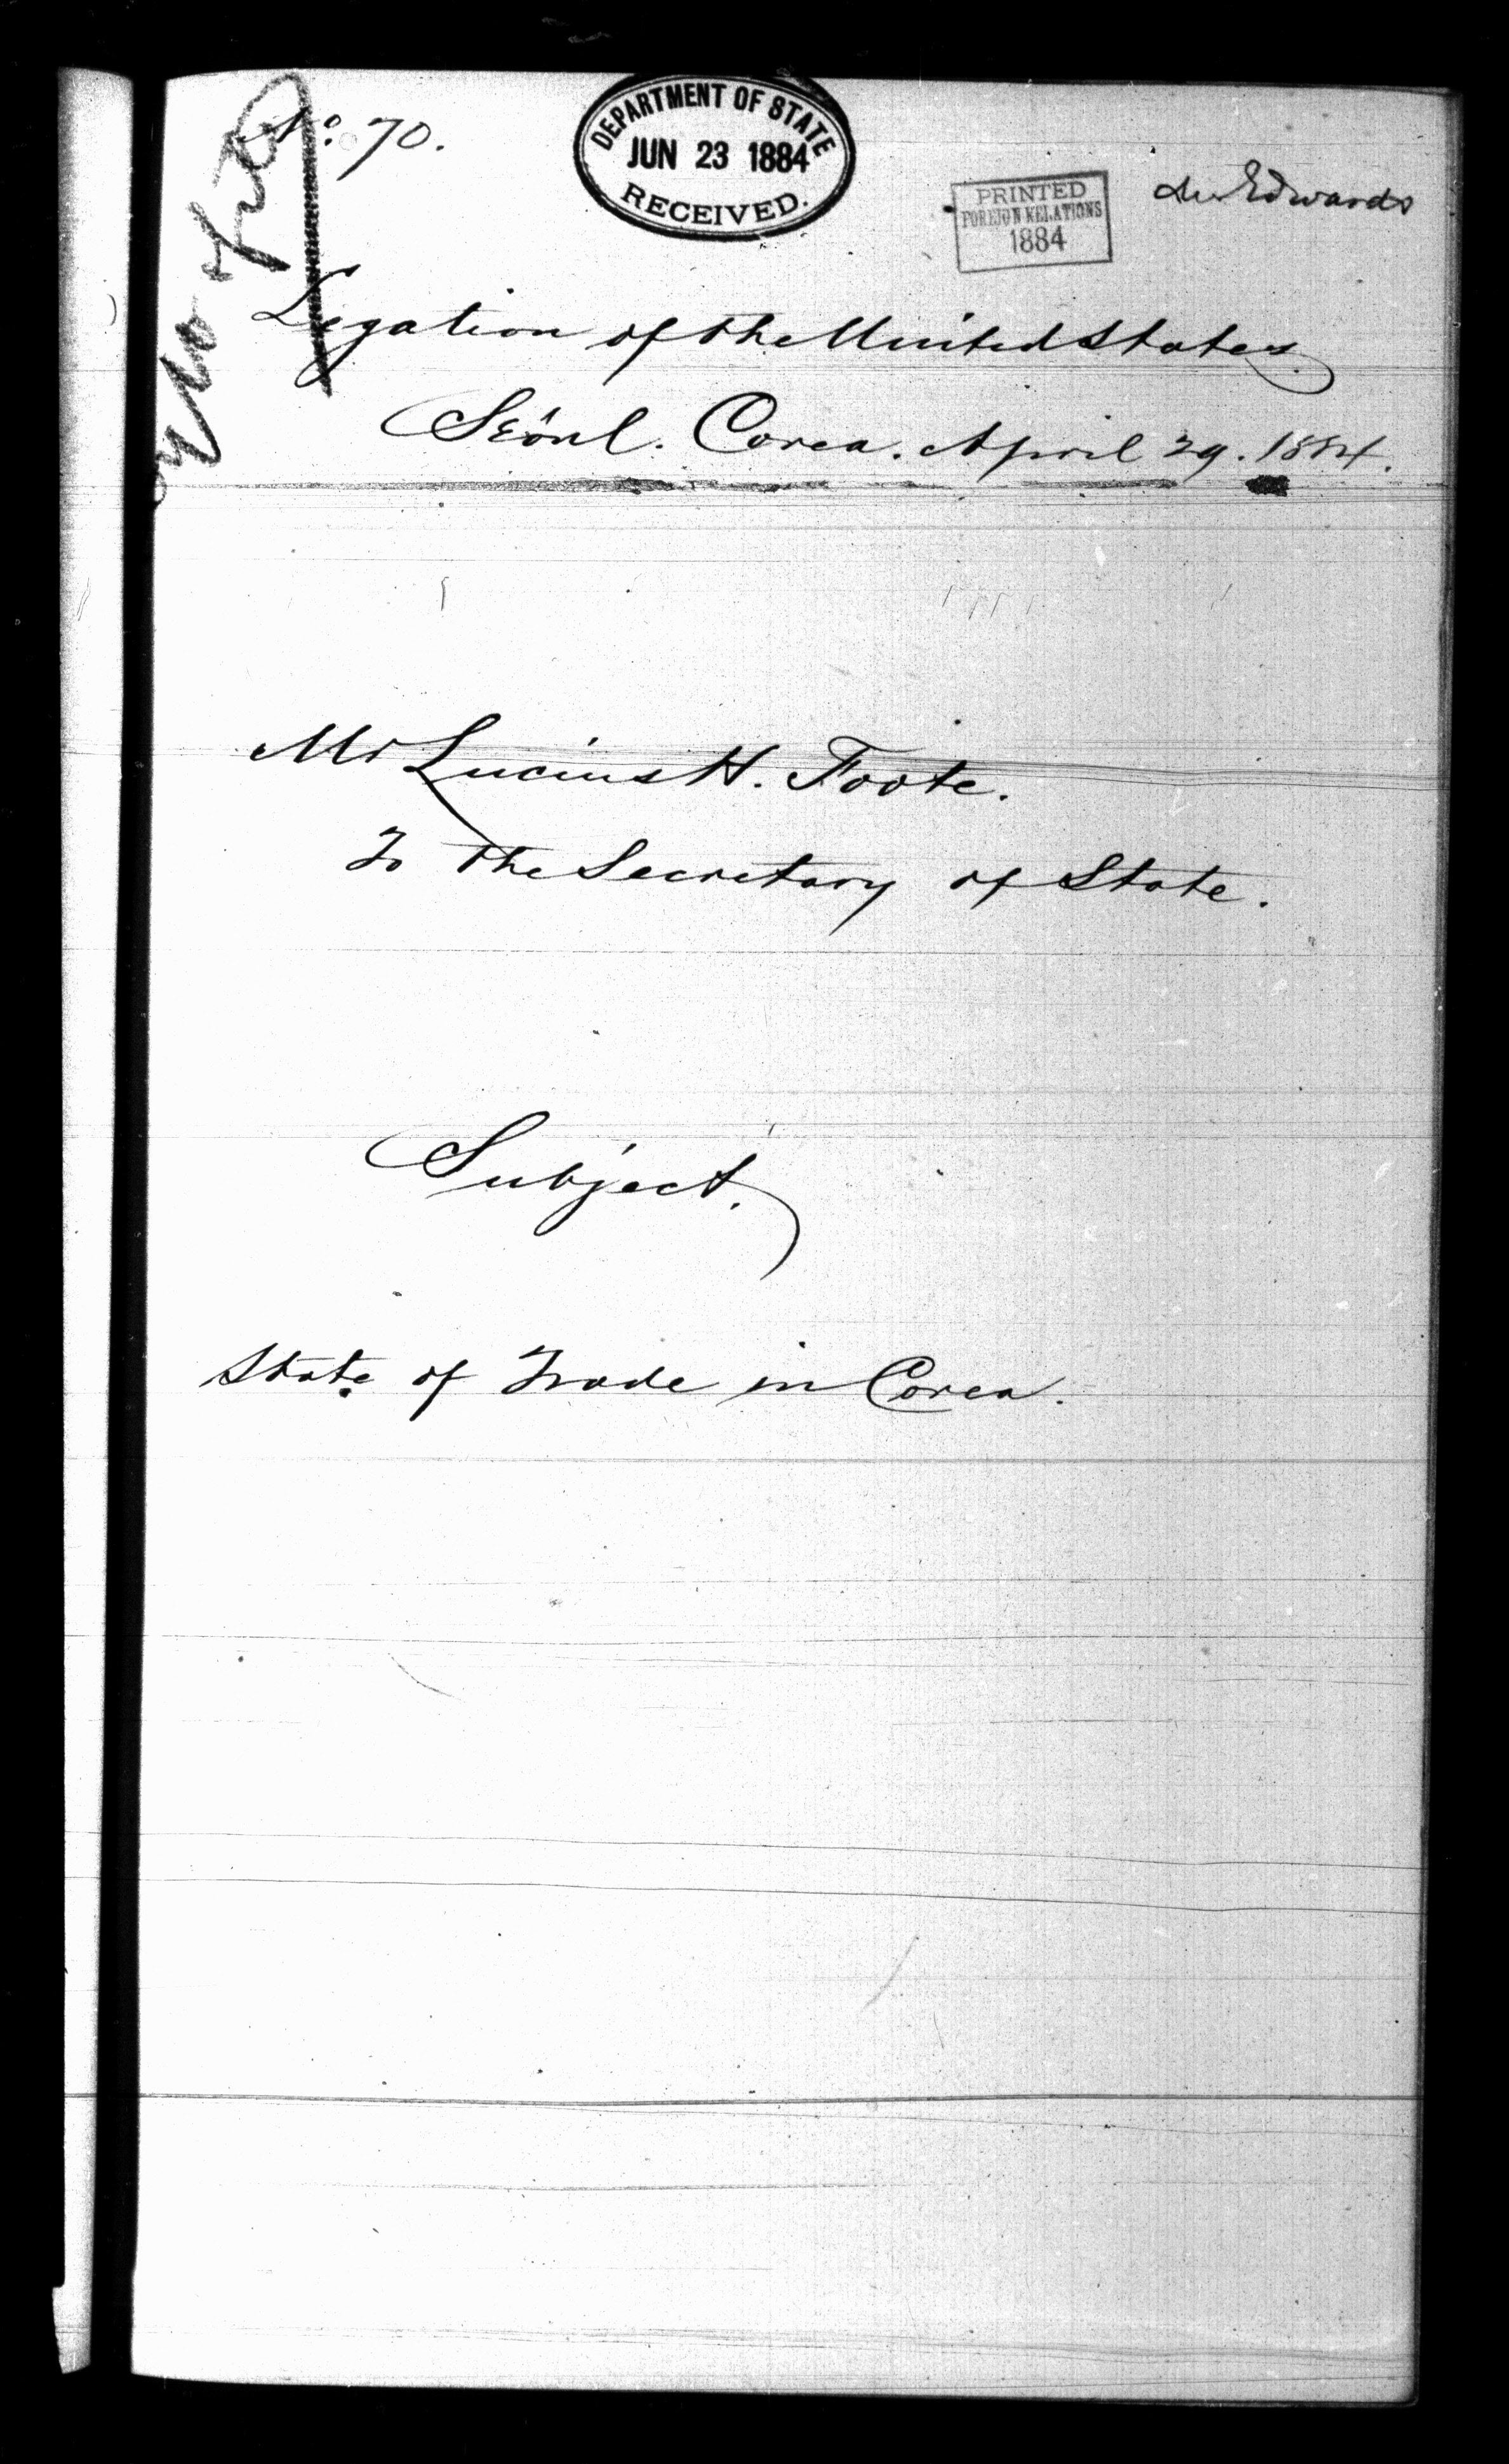 No. 70.
DEPARTMENT OF STATE
JUN 23 1884
RECEIVED.
PRINTED
FOREIGN RELATIONS
1884
Edwards
Legation of the United States.
Seöul. Corea. April 29. 1884.
Mr Lucius H. Foote.
To the Secretary of State.
Subject.
State of Trade in Corea.